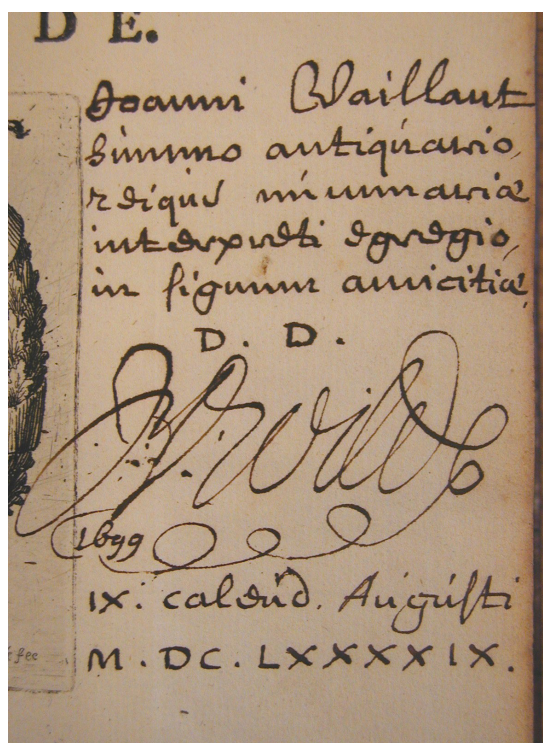 D E.
Joanni Vaillant
summo antiquario,
reiqué nummariæ
interpreti egregio,
in signum amicitiæ,
D. D.
J. de Wilde
1699
IX. calend. Augusti
M.DC.LXXXXIX.
fec